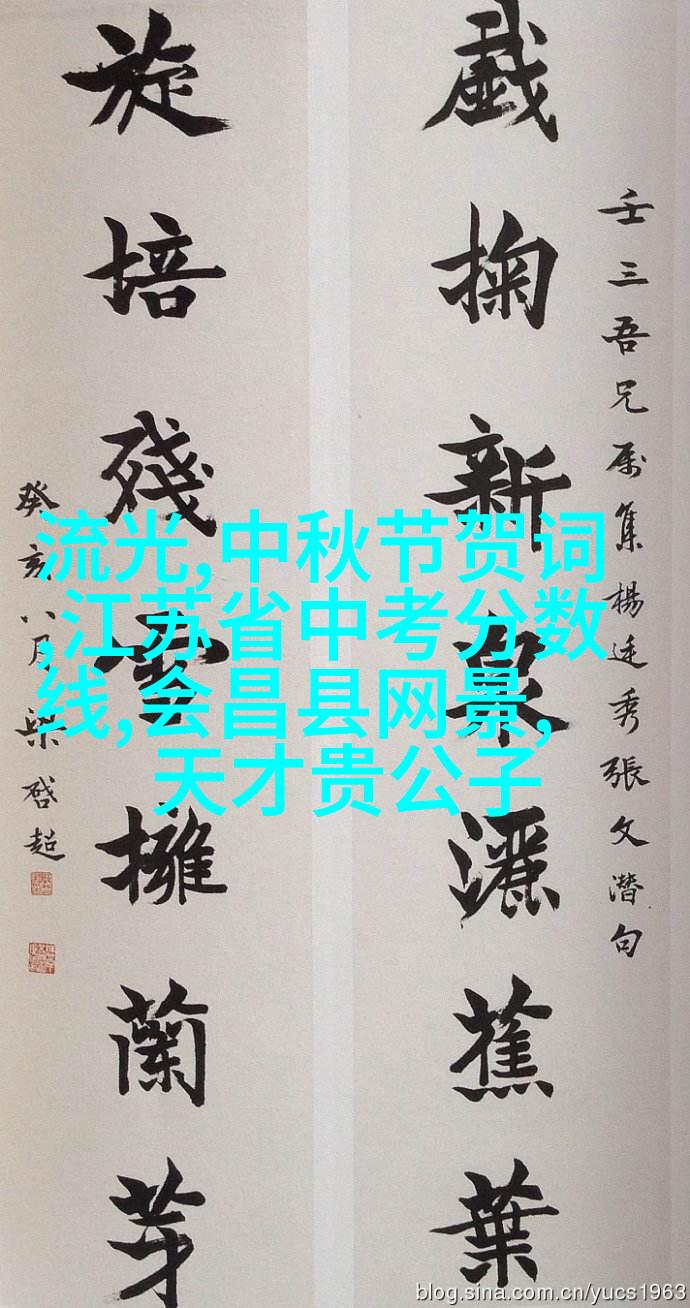 壬三吾兄属集楊廷秀張文潛句
戲掬新泉灑蕉葉
旋培殘雪擁蘭芽
癸亥八月梁啓超
流光,中秋节贺词
,江苏省中考分数
线,会昌县网景,
天才贵公子
blog.sina.com.cn/yucs1963